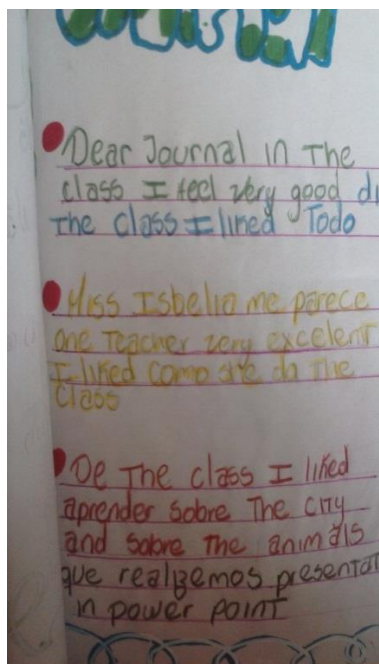 Dear Journal In The
class I feel very good
The class I liked Todo
Miss Isbelia me parece
one Teacher very excelent
I liked como she da The
class
De The class I liked
aprender sobre The city
and sobre The animals
que realizemos
in power point